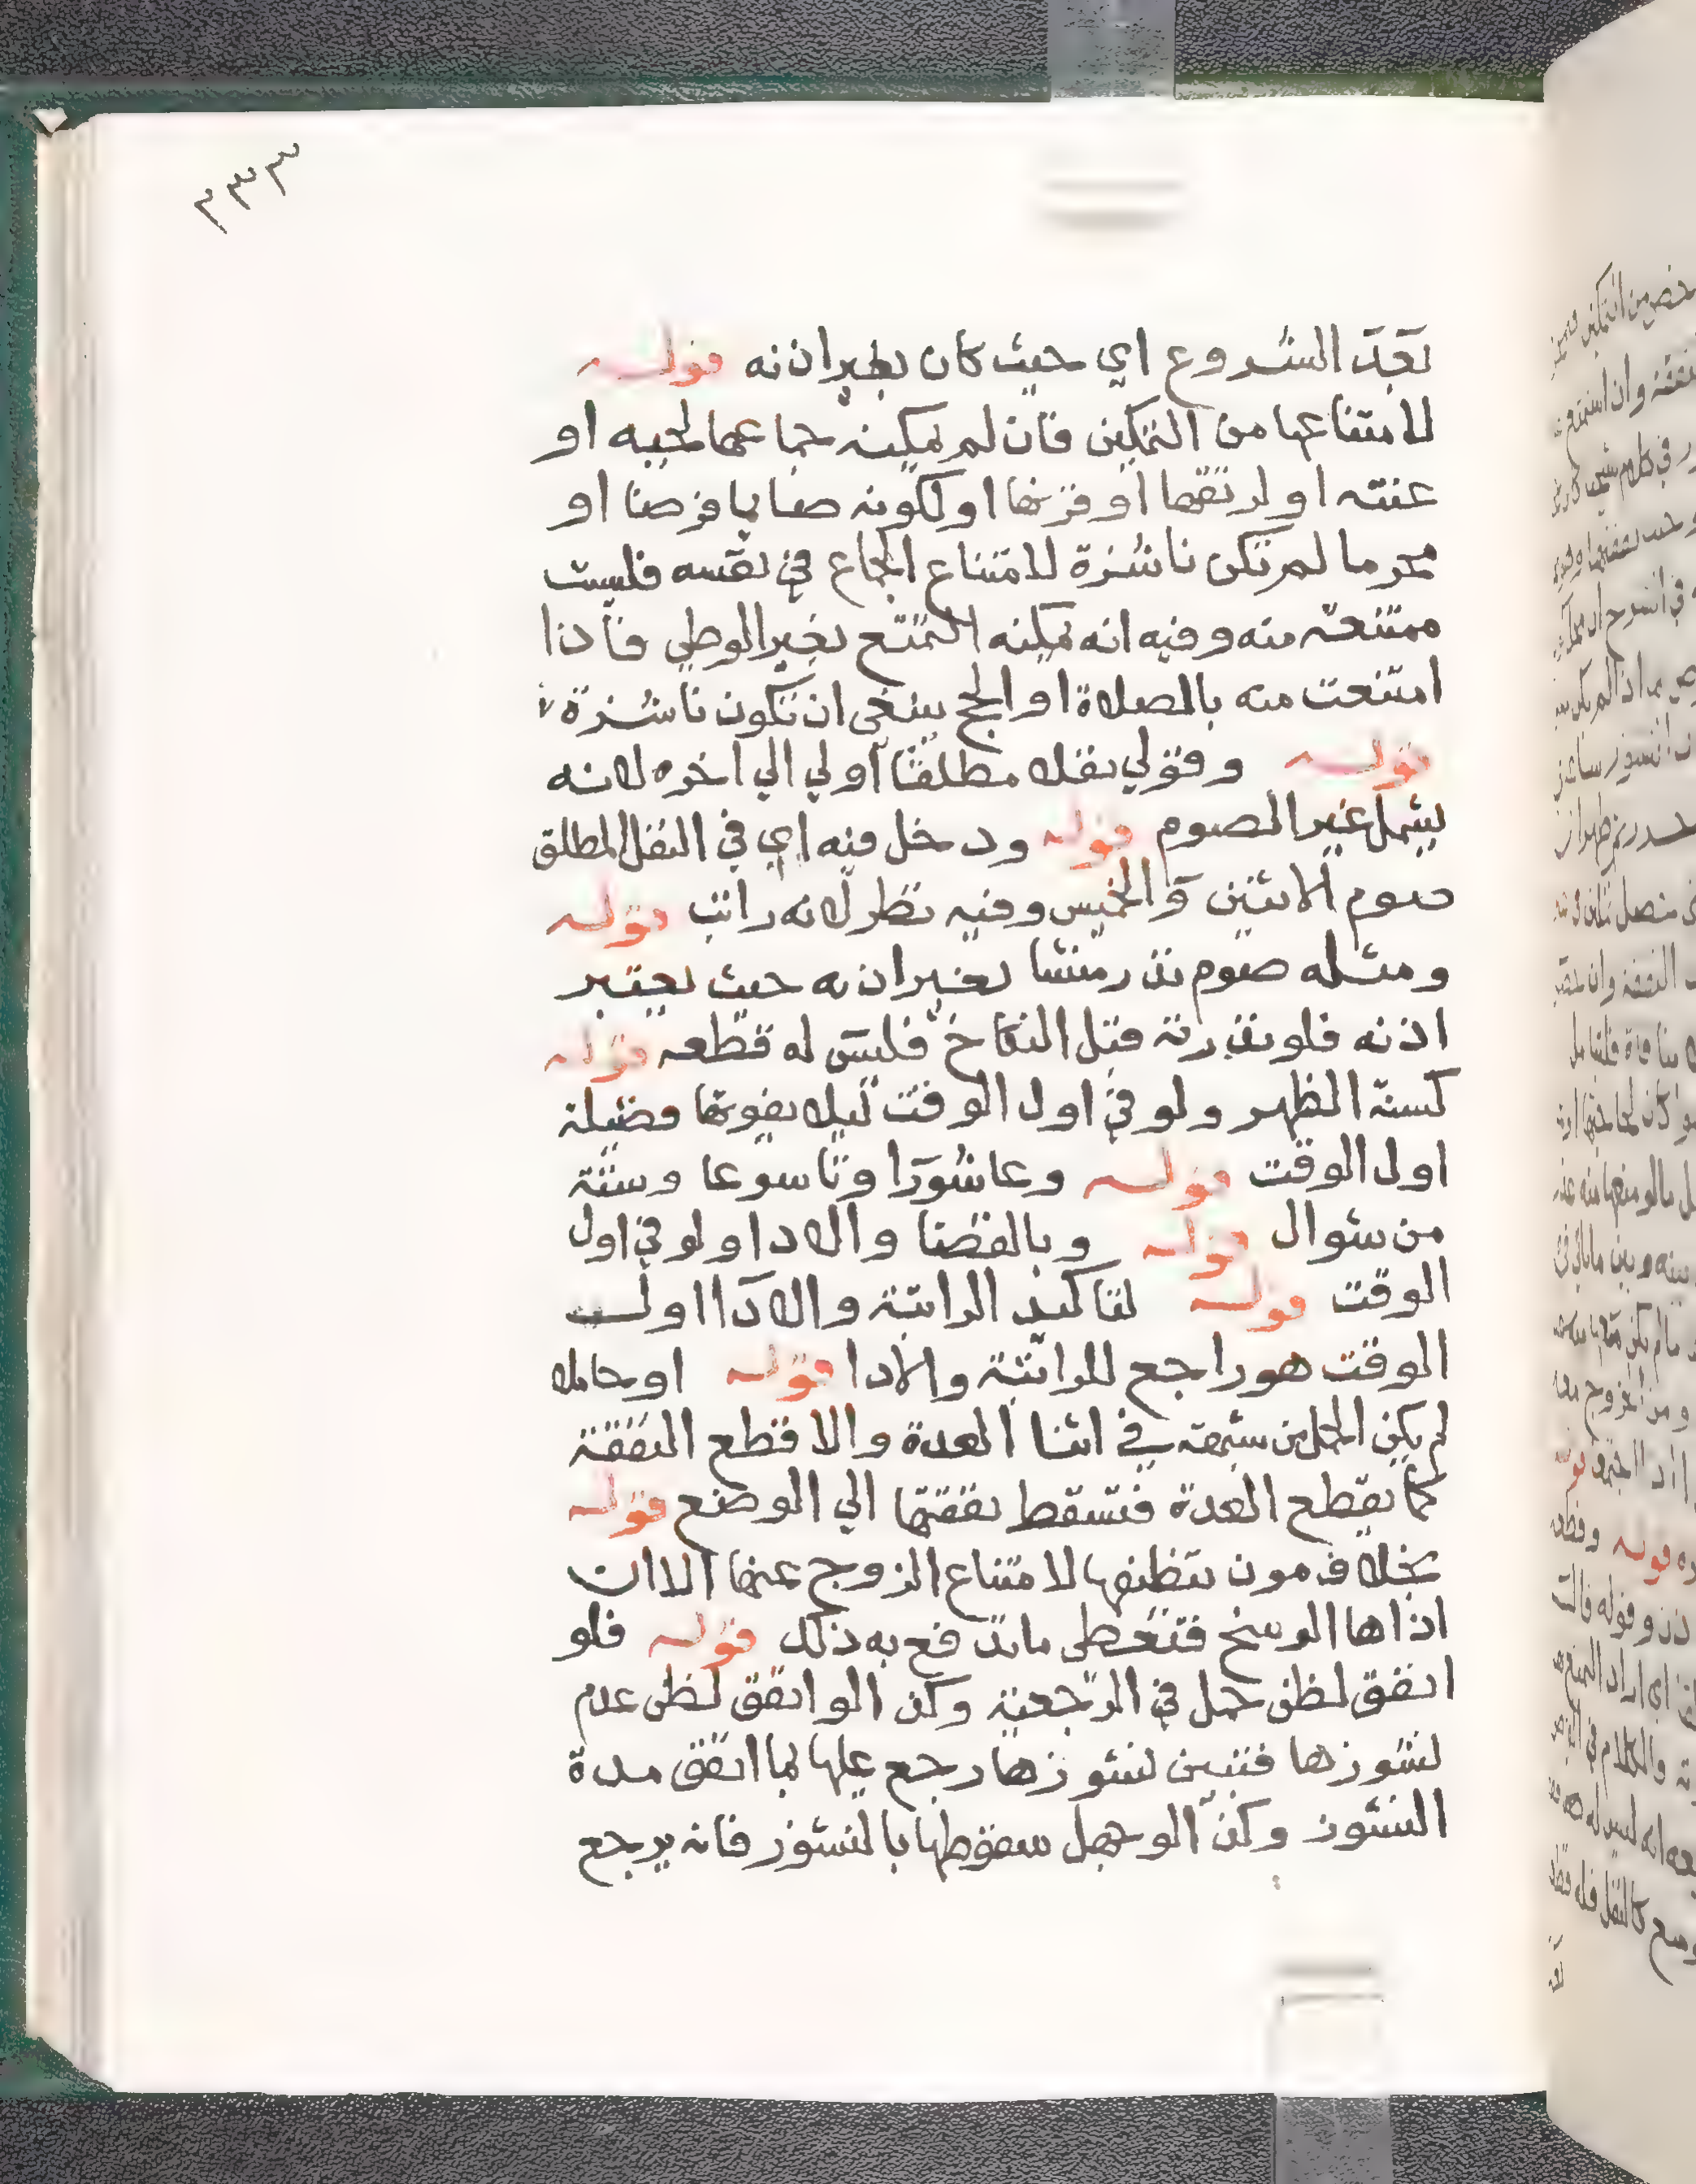 ٣٣٣
بعد الشروع اي حيث كان بغير اذنه قوله
لامتناعها من التمكين فان لم يمكنه جماعها لجبه او
عنته او لرتقها او قرنها او لكونه صائما فرضا او
محرما لم تكن ناشزة لامتناع الجماع في نفسه فليست
ممتنعة منه وفيه انه يمكنه التمتع بغير الوطي فاذا
امتنعت منه بالصلاة او الحج ينبغي ان تكون ناشزة
قوله وقولي نفلا مطلقا اولي الي اخره لانه
يشمل غير الصوم قوله ودخل فيه اي في النفل المطلق
صوم الاثنين والخميس وفيه نظر لانه راتب قوله
ومثله صوم نذر منشا بغير اذنه حيث يعتبر
اذنه فلو نذرته قبل النكاح فليس له قطعه قوله
كسنة الظهر ولو في اول الوقت ليلا يفوتها فضيلة
اول الوقت قوله وعاشورا وتاسوعا وستة
من شوال قوله وبالقضا والادا ولو في اول
الوقت قوله لتاكيد الراتبة والادا اول
الوقت هو راجع للراتبة والادا قوله او حامل
لم يكن الحمل من شبهة في اثنا العدة والا قطع النفقة
كما يقطع العدة فتسقط نفقتها الي الوضع قوله
بخلاف مون تنظيفها لامتناع الزوج عنها الا ان
اذاها الوسخ فتعطى ما تدفع به ذلك قوله فلو
انفق لظن حمل في الرجعية وكذا لو انفق لظن عدم
نشوزها فتبين نشوزها رجع عليها بما انفق مدة
النشوز وكذا لو جهل سقوطها بالنشوز فانه يرجع